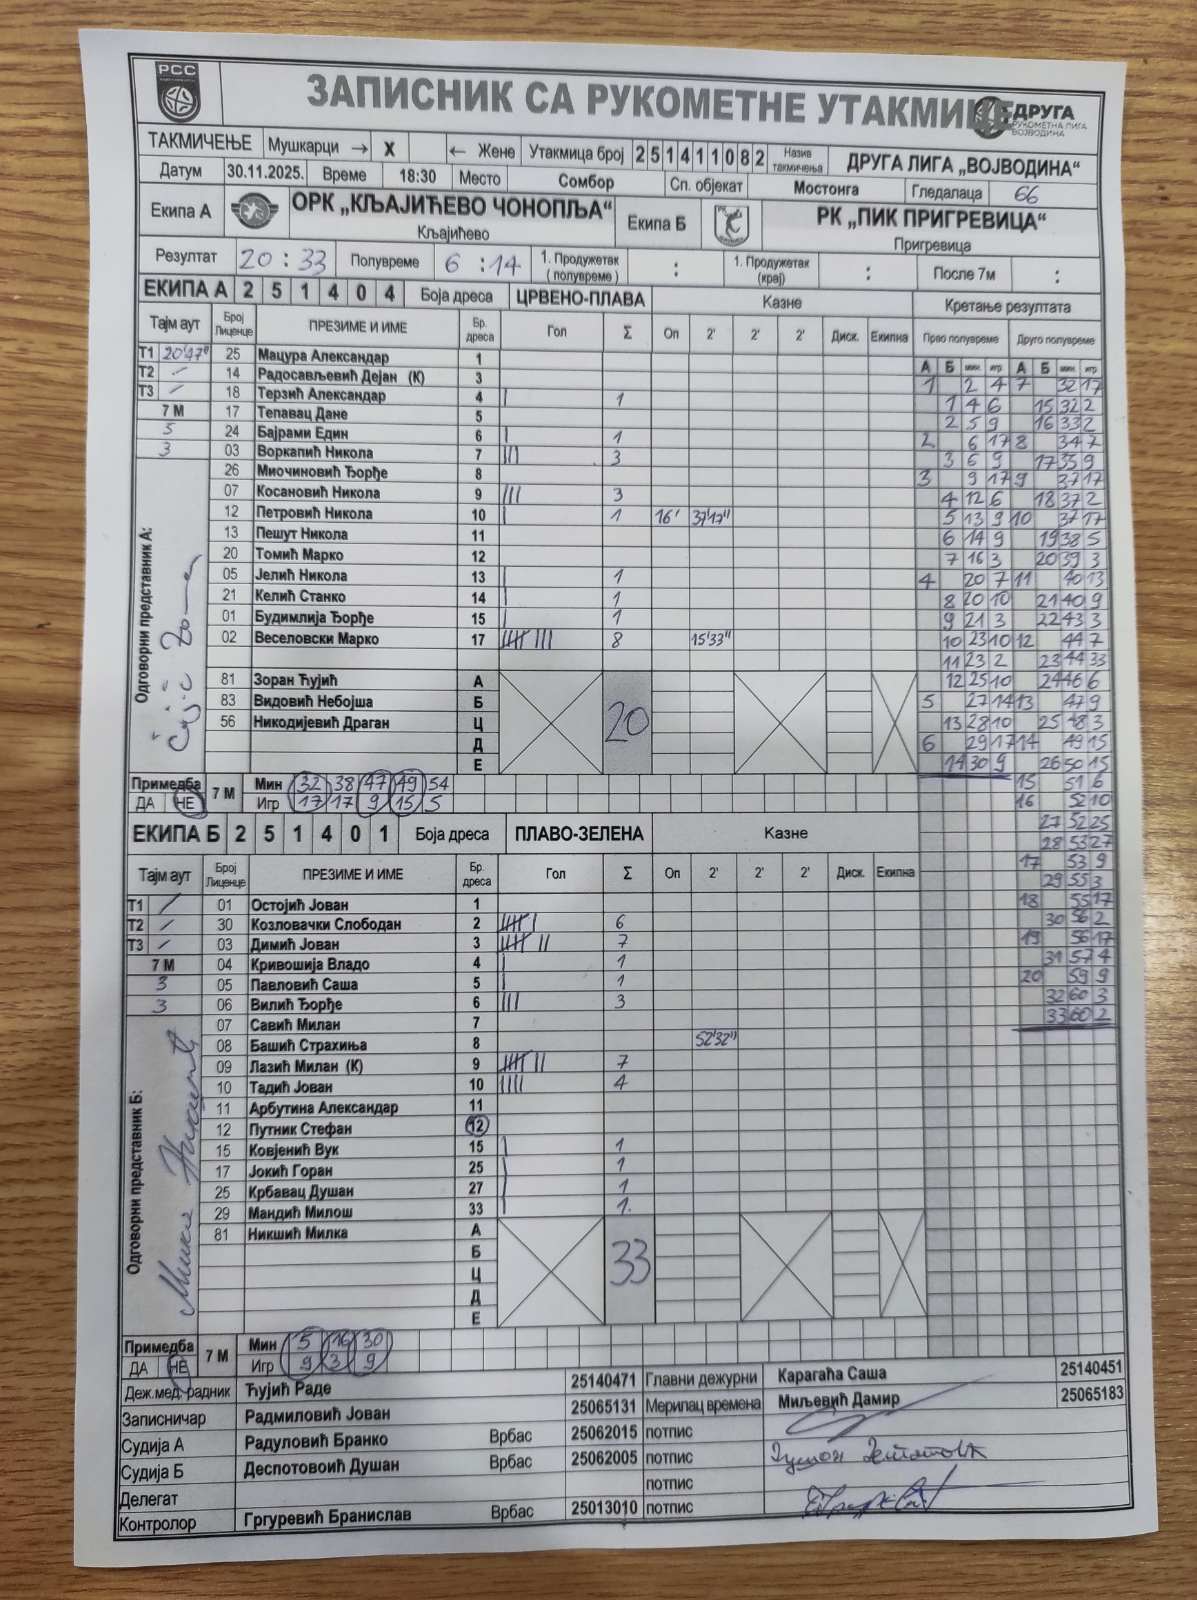 РСС
ЗАПИСНИК СА РУКОМЕТНЕ УТАКМИЦЕ
ДРУГА
РУКОМЕТНА ЛИГА
ВОЈВОДИНА
ТАКМИЧЕЊЕ Мушкарци → X ← Жене Утакмица број 2 5 1 4 1 1 0 8 2 Назив такмичења ДРУГА ЛИГА „ВОЈВОДИНА“
Датум 30.11.2025. Време 18:30 Место Сомбор Сп. објекат Мостонга Гледалаца 66
Екипа А ОРК „КЉАЈИЋЕВО ЧОНОПЉА“ Кљајићево Екипа Б РК „ПИК ПРИГРЕВИЦА“ Пригревица
Резултат 20 : 33 Полувреме 6 : 14 1. Продужетак (полувреме) : 1. Продужетак (крај) : После 7м :
ЕКИПА А 2 5 1 4 0 4 Боја дреса ЦРВЕНО-ПЛАВА Казне Кретање резултата
Тајм аут Број Лиценце ПРЕЗИМЕ И ИМЕ Бр. дреса Гол Σ Оп 2' 2' 2' Диск. Екипна Прво полувреме Друго полувреме
А Б мин. игр. А Б мин. игр.
Т1 20'47" 25 Мацура Александар 1
Т2 / 14 Радосављевић Дејан (К) 3
Т3 / 18 Терзић Александар 4 | 1
7 М 17 Тепавац Дане 5
5 24 Бајрами Един 6 | 1
3 03 Воркапић Никола 7 ||| 3
26 Миочиновић Ђорђе 8
07 Косановић Никола 9 ||| 3
12 Петровић Никола 10 | 1 16' 37'17"
13 Пешут Никола 11
20 Томић Марко 12
05 Јелић Никола 13 | 1
21 Келић Станко 14 | 1
01 Будимлија Ђорђе 15 | 1
02 Веселовски Марко 17 |||| ||| 8 15'33"
81 Зоран Ћујић А
83 Видовић Небојша Б
56 Никодијевић Драган Ц
Д
Е
20
Одговорни представник А:
1 2 4 7 32 17
1 4 6 15 32 2
2 5 9 16 33 2
2 6 17 8 34 7
3 6 9 17 35 9
3 9 17 9 37 17
4 12 6 18 37 2
5 13 9 10 37 17
6 14 9 19 38 5
7 16 3 20 39 3
4 20 7 11 40 13
8 20 10 21 40 9
9 21 3 22 43 3
10 23 10 12 44 7
11 23 2 23 44 33
12 25 10 24 46 6
5 27 14 13 47 9
13 28 10 25 48 3
6 29 17 14 49 15
14 30 9 26 50 15
15 51 6
16 52 10
27 52 25
28 53 27
17 53 9
29 55 3
18 55 17
30 56 2
19 56 17
31 57 4
20 59 9
32 60 3
33 60 2
Примедба ДА НЕ 7 М Мин 32 38 47 49 54
Игр 17 17 9 15 5
ЕКИПА Б 2 5 1 4 0 1 Боја дреса ПЛАВО-ЗЕЛЕНА Казне
Тајм аут Број Лиценце ПРЕЗИМЕ И ИМЕ Бр. дреса Гол Σ Оп 2' 2' 2' Диск. Екипна
Т1 / 01 Остојић Јован 1
Т2 / 30 Козловачки Слободан 2 |||| | 6
Т3 / 03 Димић Јован 3 |||| || 7
7 М 04 Кривошија Владо 4 | 1
3 05 Павловић Саша 5 | 1
3 06 Вилић Ђорђе 6 ||| 3
07 Савић Милан 7
08 Башић Страхиња 8 52'32"
09 Лазић Милан (К) 9 |||| || 7
10 Тадић Јован 10 |||| 4
11 Арбутина Александар 11
12 Путник Стефан 12
15 Ковјенић Вук 15 | 1
17 Јокић Горан 25 | 1
25 Крбавац Душан 27 | 1
29 Мандић Милош 33 | 1
81 Никшић Милка А
Б
Ц
Д
Е
33
Одговорни представник Б:
Примедба ДА НЕ 7 М Мин 5 16 30
Игр 9 3 9
Деж.мед. радник Ћујић Раде 25140471 Главни дежурни Карагаћа Саша 25140451
Записничар Радмиловић Јован 25065131 Мерилац времена Миљевић Дамир 25065183
Судија А Радуловић Бранко Врбас 25062015 потпис
Судија Б Деспотовоић Душан Врбас 25062005 потпис
Делегат потпис
Контролор Гргуревић Бранислав Врбас 25013010 потпис